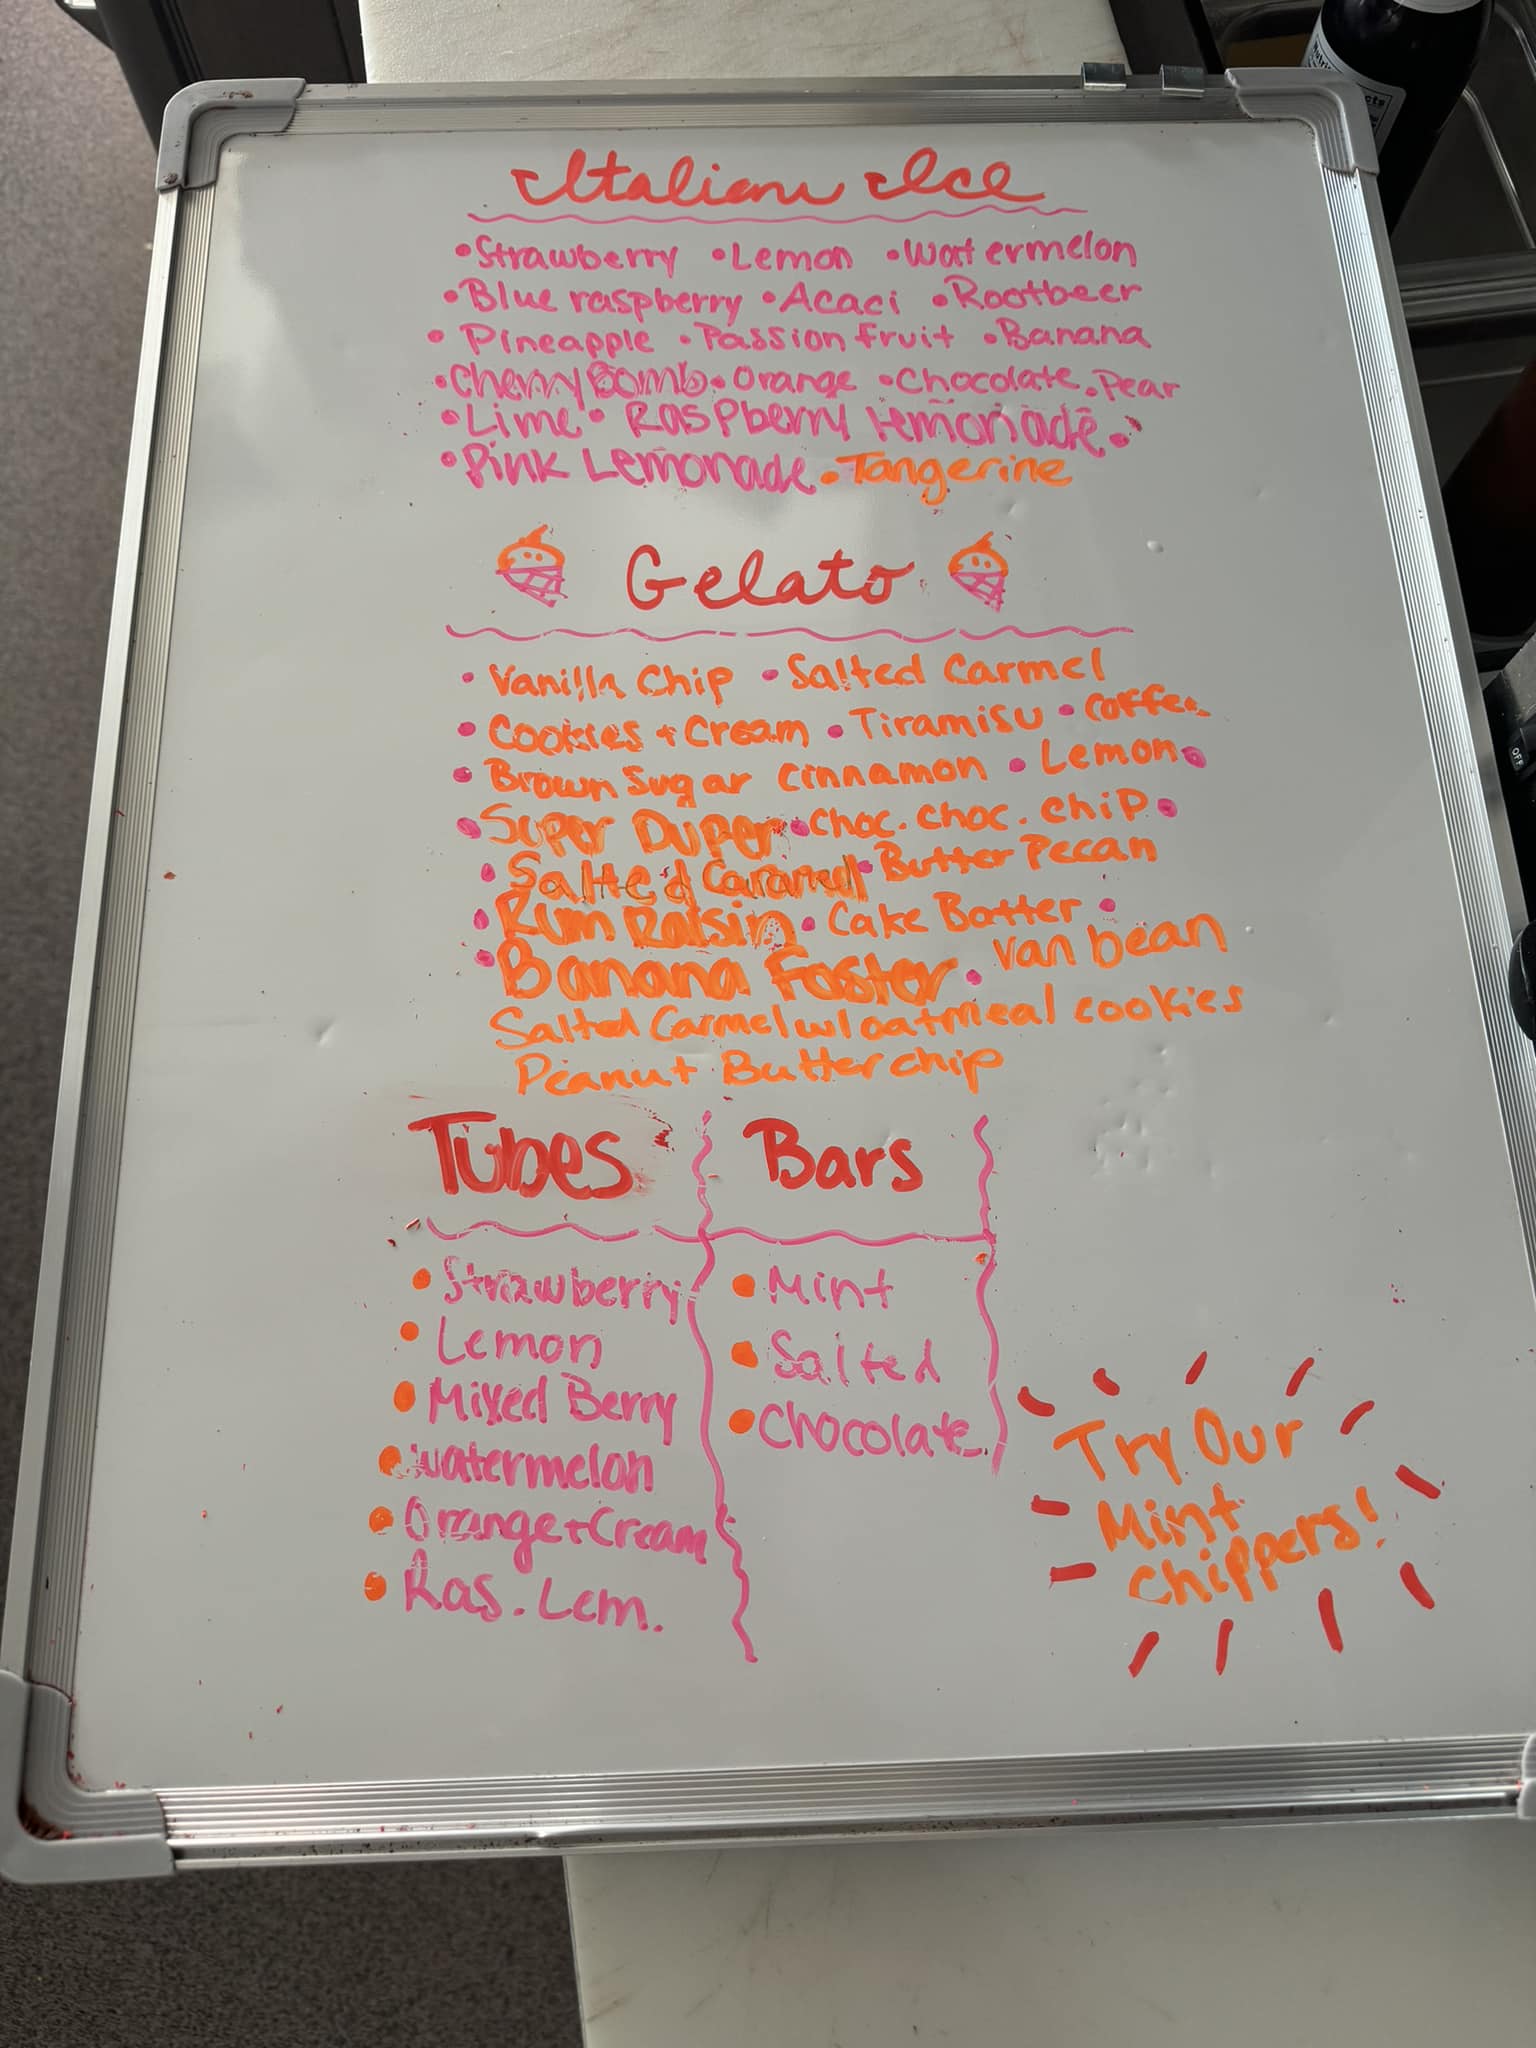 Italian Ice
• Strawberry • Lemon • Watermelon
• Blue raspberry • Acaci • Rootbeer
• Pineapple • Passion fruit • Banana
• Cherry Bomb • Orange • Chocolate • Pear
• Lime • Raspberry lemonade •
• Pink Lemonade • Tangerine
Gelato
• Vanilla Chip • Salted Carmel
• Cookies + Cream • Tiramisu • Coffee
• Brown Sugar Cinnamon • Lemon •
• Super Duper • Choc. choc. chip •
• Salted Caramel • Butter Pecan
• Rum Raisin • Cake Batter •
• Banana Foster • Van bean
Salted Carmel w/ oatmeal cookies
Peanut Butter chip
Tubes
• Strawberry
• Lemon
• Mixed Berry
• Watermelon
• Orange + Cream
• Ras. Lem.
Bars
• Mint
• Salted
• Chocolate
Try Our
Mint
Chippers!
OFF